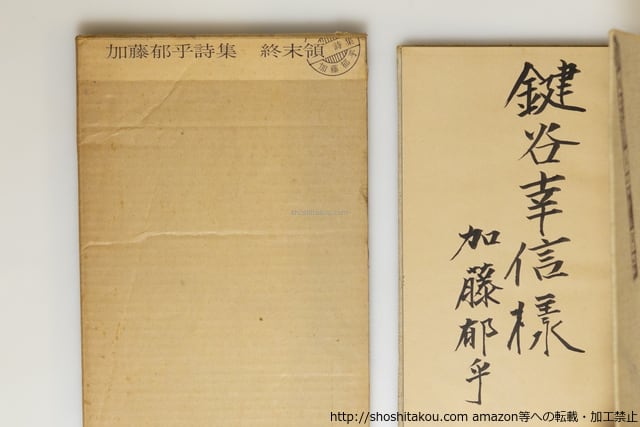 加藤郁乎詩集　終末領
詩集
加藤郁乎
shoshitakou.com
鍵谷幸信様
加藤郁乎
http://shoshitakou.com amazon等への転載・加工禁止